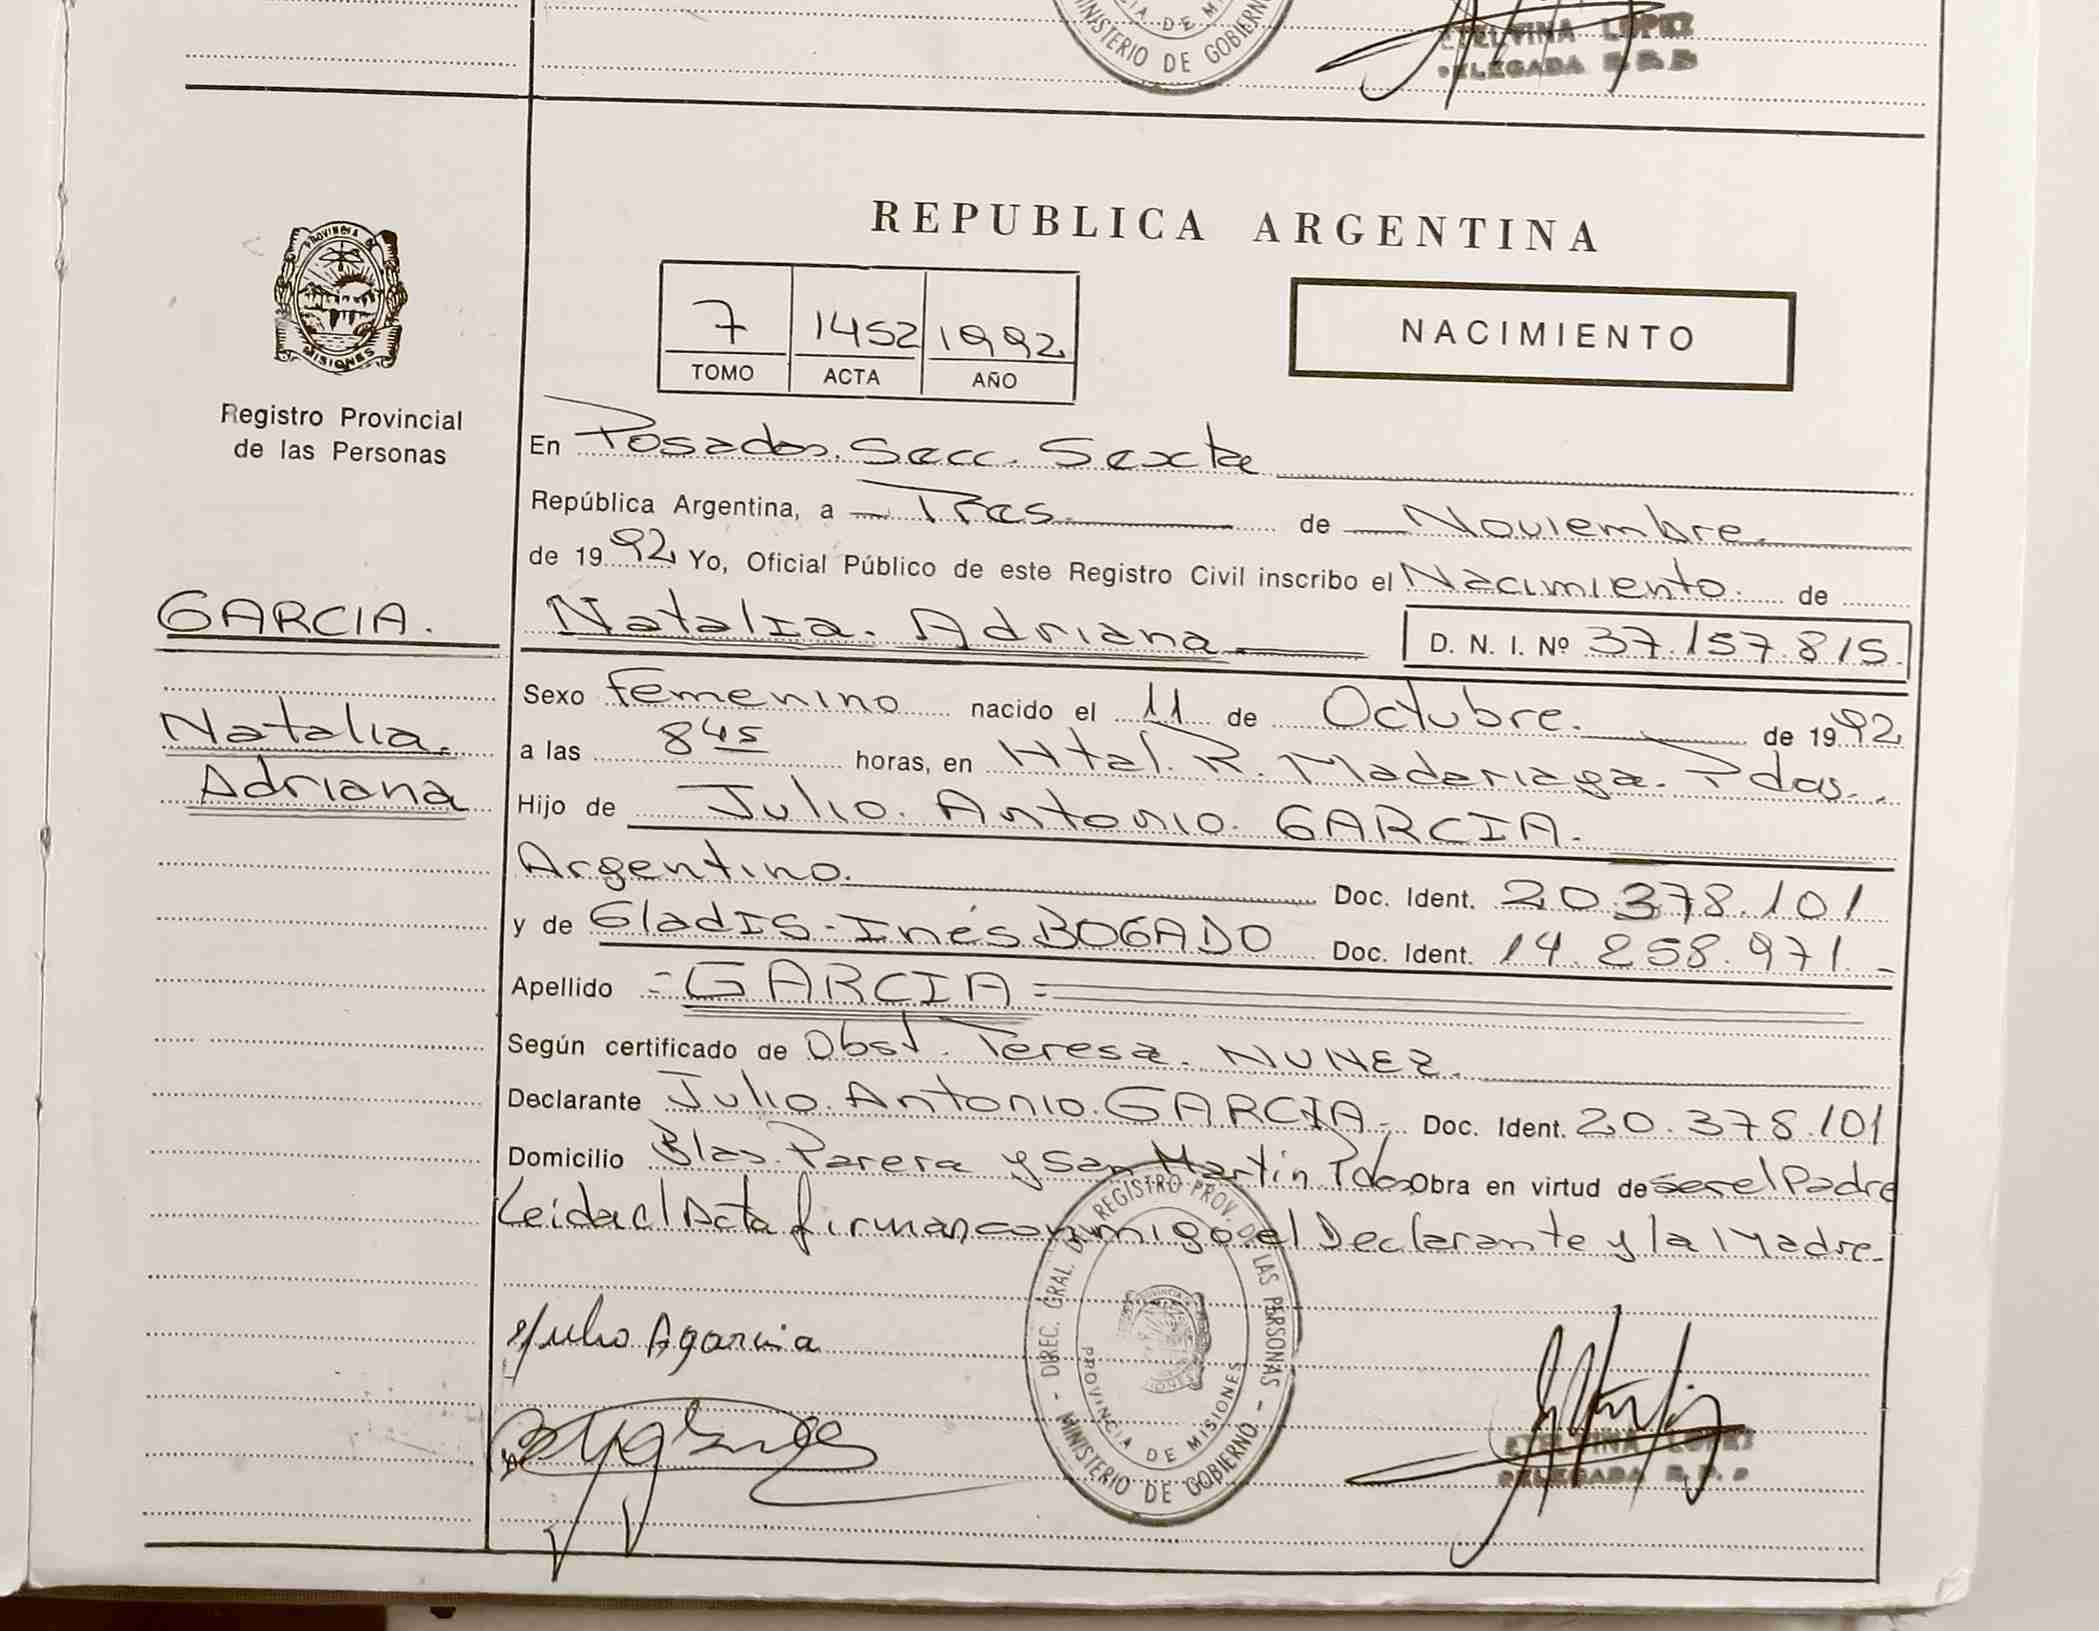 PROVINCIA DE MISIONES
MINISTERIO DE GOBIERNO
ETELVINA LOPEZ
DELEGADA R.P.P
PROVINCIA DE
MISIONES
Registro Provincial
de las Personas
GARCIA.
Natalia
Adriana
REPUBLICA ARGENTINA
7 1452 1992
TOMO ACTA AÑO
NACIMIENTO
En Posadas. Secc. Sexta
República Argentina, a Tres de Noviembre.
de 1992 Yo, Oficial Público de este Registro Civil inscribo el Nacimiento. de
Natalia. Adriana D. N. I. Nº 37.157.815.
Sexo femenino nacido el 11 de Octubre. de 1992
a las 8 45 horas, en Htal. R. Madariaga. Pdas.
Hijo de Julio. Antonio. GARCIA.
Argentino. Doc. Ident. 20.378.101
y de Gladis. Inés BOGADO Doc. Ident. 14.258.971.
Apellido = GARCIA =
Según certificado de Obst. Teresa. NUNEZ.
Declarante Julio. Antonio. GARCIA. Doc. Ident. 20.378.101
Domicilio Blas. Parera y San Martín Pdas Obra en virtud de ser el Padre
Leida el Acta firman conmigo el Declarante y la Madre.
Julio A garcia
DIREC. GRAL. DEL REGISTRO PROV. DE LAS PERSONAS
PROVINCIA DE MISIONES
MINISTERIO DE GOBIERNO
ETELVINA LOPEZ
DELEGADA R.P.P